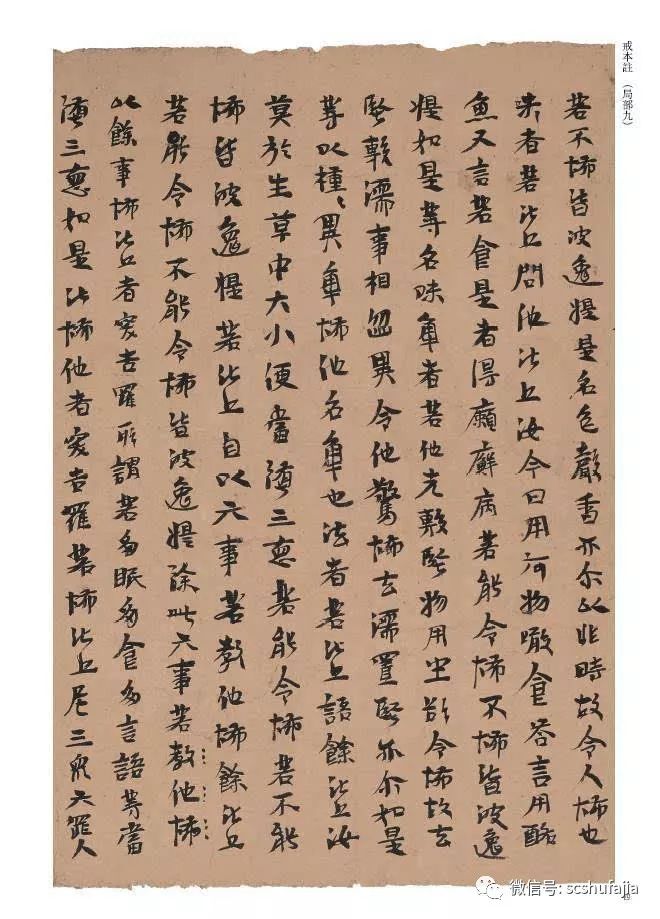 戒本註（局部九）
若不怖皆波逸提是名色聲香亦尔以非時故令人怖也
味者若比丘問他比丘汝今日用何物噉食答言用酪
魚又言若食是者得癩癬病若能令怖不怖皆波逸
提如是等名味觕者若他先敷堅物用坐欲令怖故去
堅敷濡事相忽異令他驚怖去濡置堅亦尔如是
等以種々異觕怖他名觕也法者若比丘語餘比丘汝
莫於生草中大小便當墮三惡若能令怖若不能
怖皆波逸提若比丘自以六事若教他怖餘比丘
若能令怖不能令怖皆波逸提除此六事若教他怖
以餘事怖比丘者突吉羅所謂若多眠多食多言語等當
墮三惡如是比怖他者突吉羅若怖比丘尼三衆六罪人
微信号: scshufajia